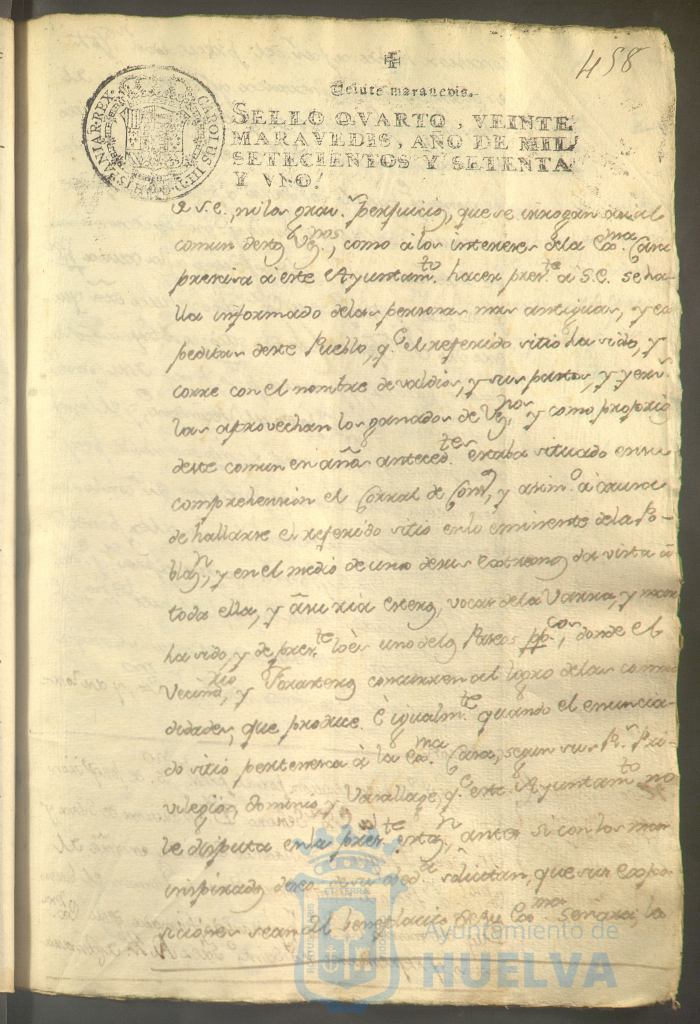 458
Veinte maravedis.
SELLO QVARTO, VEINTE
MARAVEDIS, AÑO DE MIL
SETECIENTOS Y SETENTA
Y VNO.
CAROLUS III D G HISPANIAR REX
a S.E., ni los grav.s perjuicios, que se irrogan asi al
comun destos Vez.nos, como à los intereses de la Ex.ma Casa
precisa à este Ayuntam.to hacer pres.te à S.E. se ha-
lla informado de las personas mas antiguas, y ex-
peditas deste Pueblo, q.e el referido sitio ha sido, y
corre con el nombre de valdio, y sus pastos, y yervas
las aprovechan los ganados de Vez.nos y como proprio
deste comun en años anteced.tes estaba situado en su
comprehension el Corral de Conz.o, y asim.o à causa
de hallarse el referido sitio en lo eminente de la Po-
blaz.n, y en el medio de uno de sus extremos da vista à
toda ella, y à su ria esteros, vocas de la Varra, y mar
ha sido y de pres.te lo es uno de los Paseos pp.cos, donde el
Vecind.rio, y Forasteros concurren al logro de las como-
didades, que produce. E igualm.te quando el enuncia-
do sitio pertenesca à la Ex.ma Casa, segun sus R.s Pri-
vilegios, dominio, y Vasallage, q.e este Ayuntam.to no
le disputa en la pres.te estaz.n antes si con los mas
inspirados deseos de su obed.a solicitan, que sus expo-
siciones sean del beneplacito de su Ex.ma Señora, lo
Ayuntamiento de
HUELVA